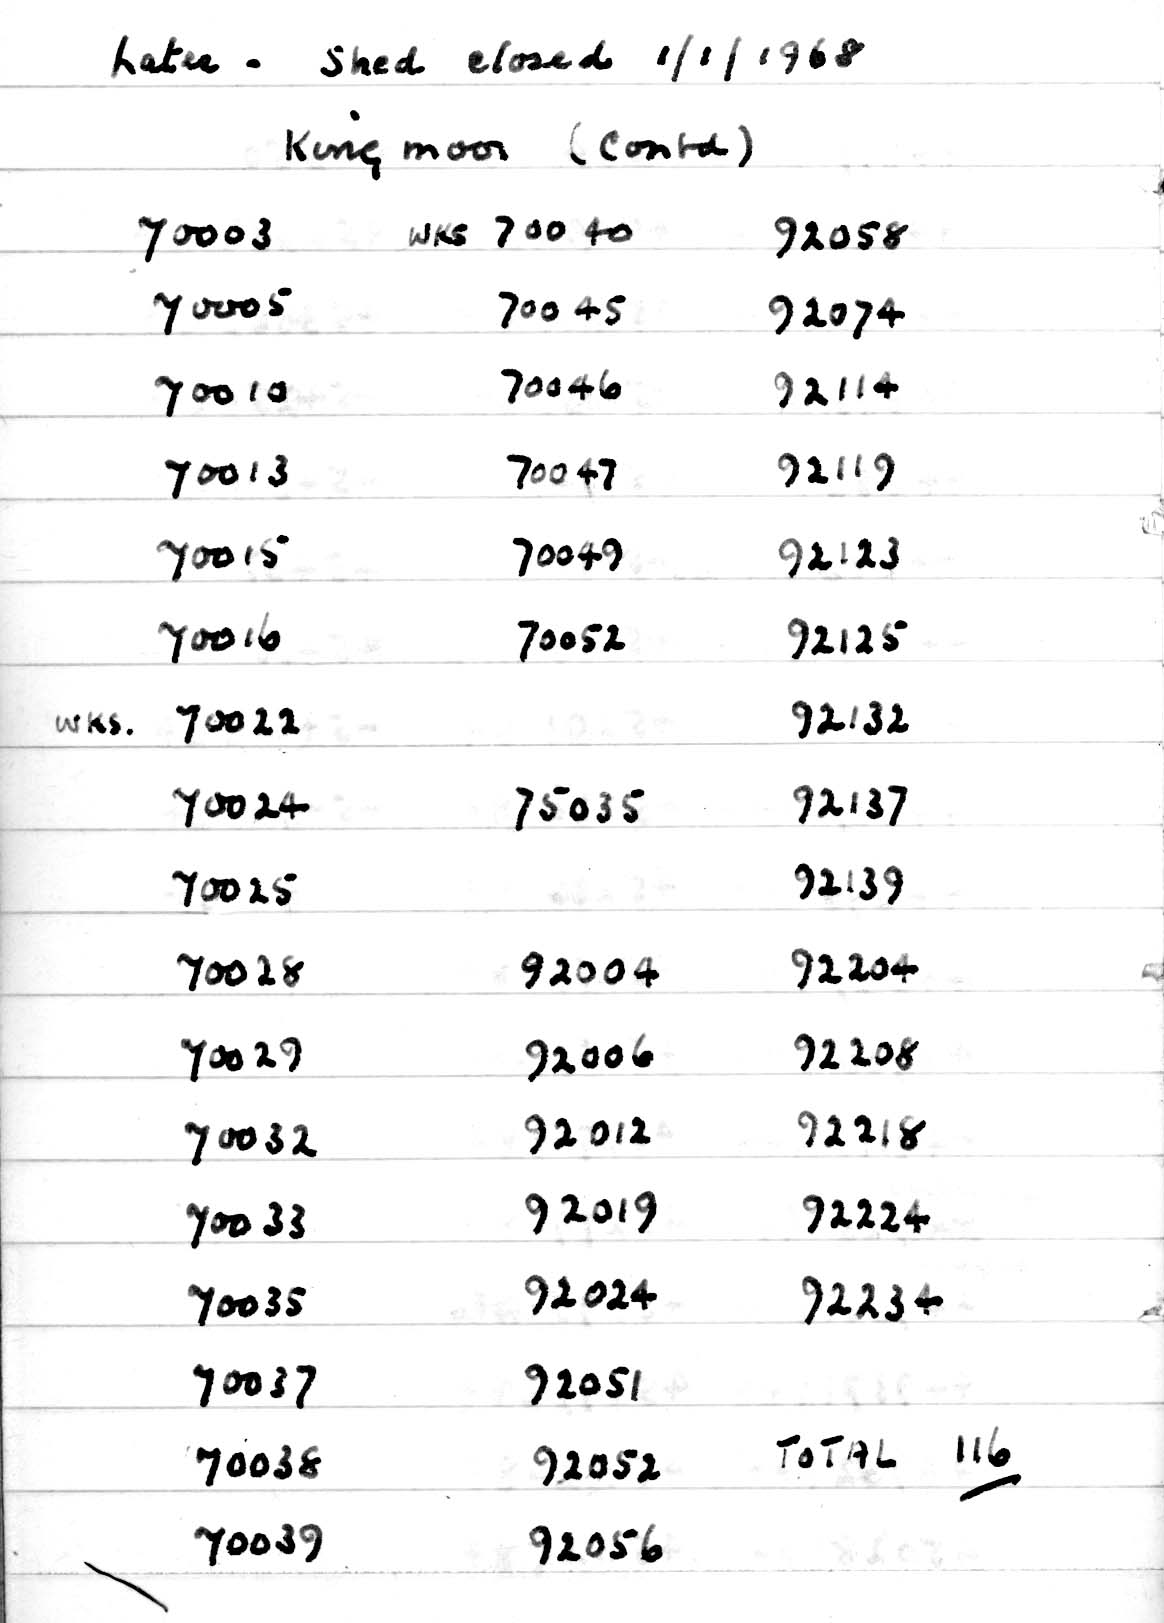 Later - Shed closed 1/1/1968
Kingmoor (Contd)
70003 WKS 70040 92058
70005 70045 92074
70010 70046 92114
70013 70047 92119
70015 70049 92123
70016 70052 92125
WKS. 70022 92132
70024 75035 92137
70025 92139
70028 92004 92204
70029 92006 92208
70032 92012 92218
70033 92019 92224
70035 92024 92234
70037 92051
70038 92052 TOTAL 116
70039 92056